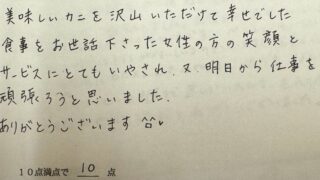 美味しいカニを沢山いただけて幸せでした
食事をお世話下さった女性の方の笑顔と
サービスにとてもいやされ、又、明日から仕事を
頑張ろうと思いました。
ありがとうございます ^^♥
10点満点で 10 点